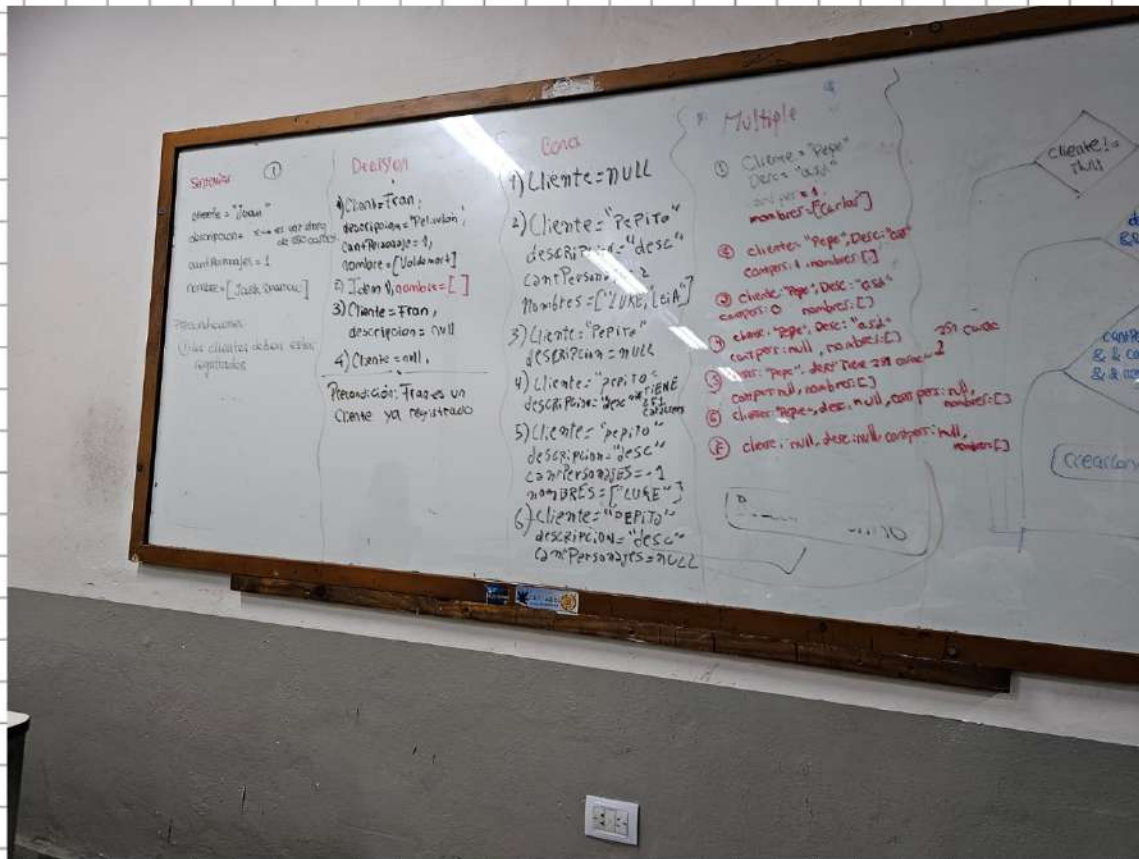 Sentencia ①
cliente = "Juan"
descripcion = x → es un string
de 250 caract
cantPersonajes = 1
nombre = [Jack Sparrow]
Precondiciones
los clientes deben estar
registrados
Decision
1) Client = Fran,
descripcion = "Peliculon",
CantPersonaje = 1,
nombre = [Voldemort]
2) Idem 1, nombre = [ ]
3) Cliente = Fran,
descripcion = null
4) Cliente = null,
Precondición: Fran es un
Cliente ya registrado
Cond
1) Cliente = NULL
2) Cliente = "PEPITO"
descripcion = "desc"
cantPersonajes = 2
Nombres = ["LUKE, LEIA"]
3) Cliente = "PEPITO"
descripcion = NULL
4) Cliente = "PEPITO"
descripcion = "desc" TIENE
251
caracteres
5) Cliente = "pepito"
descripcion = "desc"
cantPersonajes = -1
nombres = ["LUKE"]
6) Cliente = "PEPITO"
descripcion = "desc"
cantPersonajes = NULL
Multiple
① Cliente = "Pepe"
Desc = "asd"
cantpers = 1
nombres = [Carlos]
② cliente: "Pepe", Desc: "asd"
cantpers: 1, nombres: []
③ cliente: "Pepe", Desc: "asd"
cantpers: 0 nombres: []
④ cliente: "Pepe", Desc: "asd"
cantpers: null, nombres: []
251 carac
⑤ "Pepe", desc: Tiene 251 carac
cantpers: null, nombres: []
⑥ cliente: "Pepe", desc: null, cantpers: null,
nombres: []
cliente: null, desc: null, cantpers: null,
nombres: []
cliente !=
null